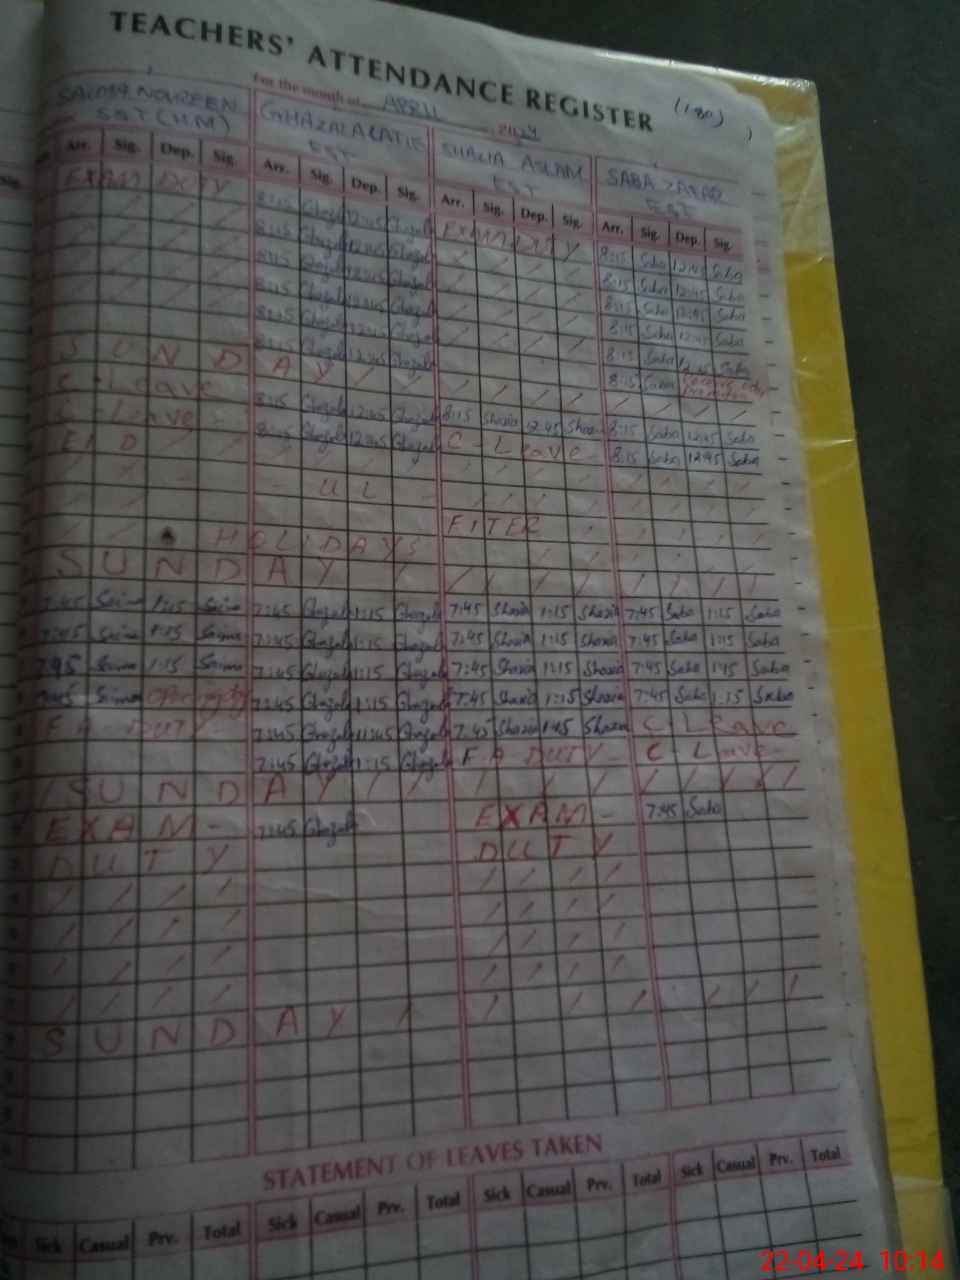 TEACHERS' ATTENDANCE REGISTER
(180)
For the month of APRIL 2024
SAIMA NOUREEN GHAZALA LATIF SHAZIA ASLAM SABA ZAFAR
SST (HM) EST EST EST
Arr. Sig. Dep. Sig. Arr. Sig. Dep. Sig. Arr. Sig. Dep. Sig. Arr. Sig. Dep. Sig.
EXAM DUTY 8:15 Ghazala 12:45 Ghazala EXAM DUTY 8:15 Saba 12:45 Saba
8:15 Ghazala 12:45 Ghazala 8:15 Saba 12:45 Saba
8:15 Ghazala 12:45 Ghazala 8:15 Saba 12:45 Saba
8:15 Ghazala 12:45 Ghazala 8:15 Saba 12:45 Saba
8:15 Ghazala 12:45 Ghazala 8:15 Saba 12:45 Saba
8:15 Ghazala 12:45 Ghazala 8:15 Saba
SUNDAY
C-Leave 8:15 Ghazala 12:45 Ghazala 8:15 Shazia 12:45 Shazia 8:15 Saba 12:45 Saba
C-Leave - 8:15 Ghazala 12:45 Ghazala C-Leave - 8:15 Saba 12:45 Saba
EID
- UL - FITER
HOLIDAYS
SUNDAY
7:45 Saima 1:15 Saima 7:45 Ghazala 1:15 Ghazala 7:45 Shazia 1:15 Shazia 7:45 Saba 1:15 Saba
7:45 Saima 1:15 Saima 7:45 Ghazala 1:15 Ghazala 7:45 Shazia 1:15 Shazia 7:45 Saba 1:15 Saba
7:45 Saima 1:15 Saima 7:45 Ghazala 1:15 Ghazala 7:45 Shazia 1:15 Shazia 7:45 Saba 1:15 Saba
7:45 Saima 7:45 Ghazala 1:15 Ghazala 7:45 Shazia 1:15 Shazia 7:45 Saba 1:15 Saba
FA - DUTY - 7:45 Ghazala 11:45 Ghazala 7:45 Shazia 11:45 Shazia C-Leave
7:45 Ghazala 1:15 Ghazala FA DUTY - C-Leave -
SUNDAY
EXAM - 7:45 Ghazala EXAM - 7:45 Saba
DUTY DUTY
SUNDAY
STATEMENT OF LEAVES TAKEN
Sick Casual Prv. Total Sick Casual Prv. Total Sick Casual Prv. Total Sick Casual Prv. Total
22-04-24 10:14